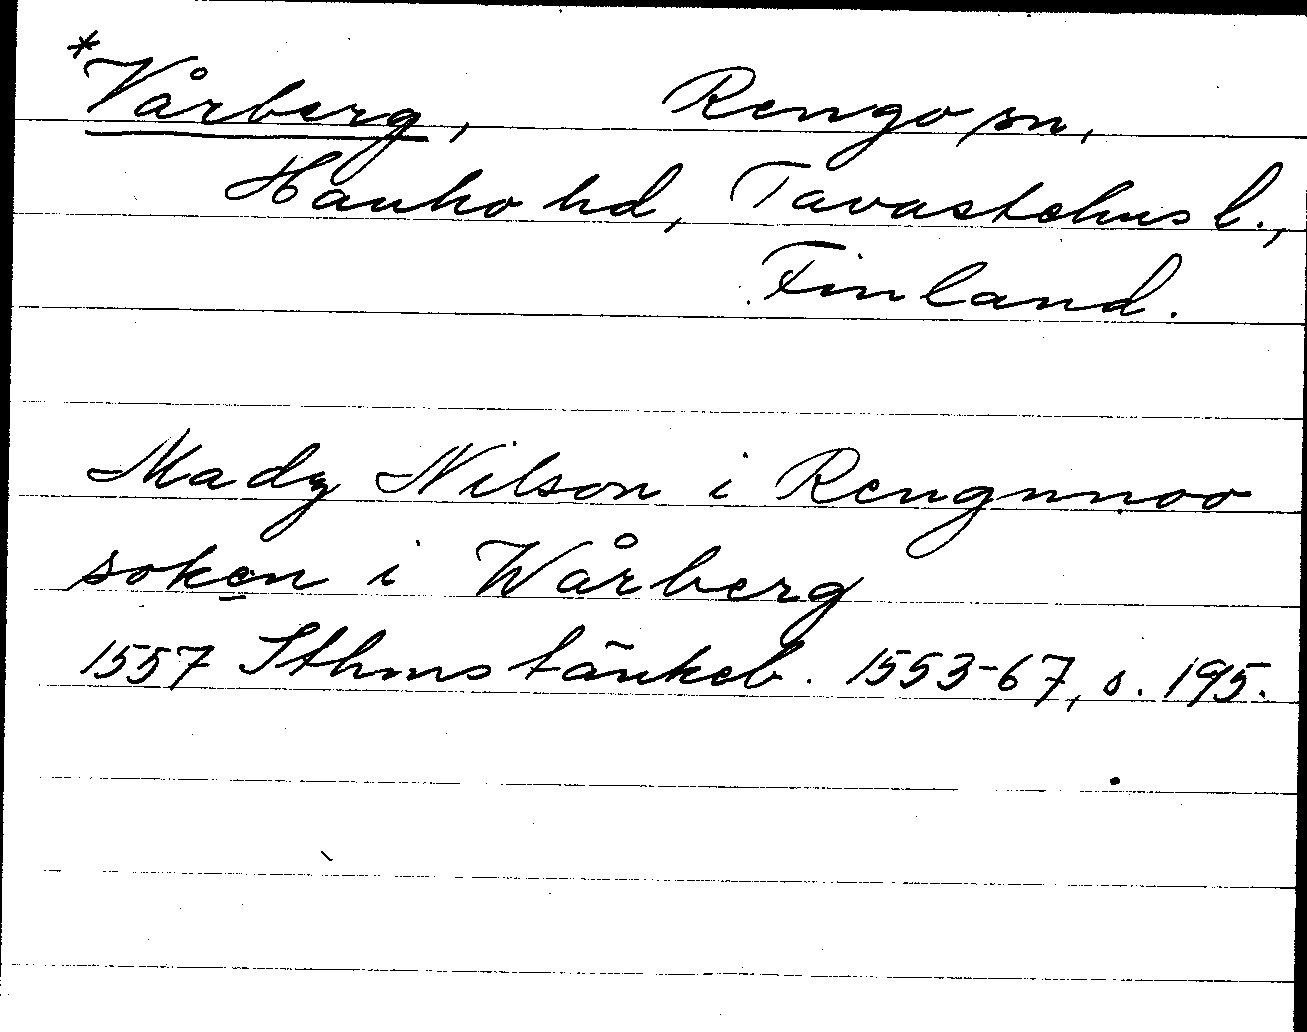 *Vårberg, Rengo sn,
Hauho hd, Tavastehus l.,
Finland.
Madz Nilson i Rengnnoo
soken i Wårberg
1557 Sthms tänkeb. 1553-67, s. 195.